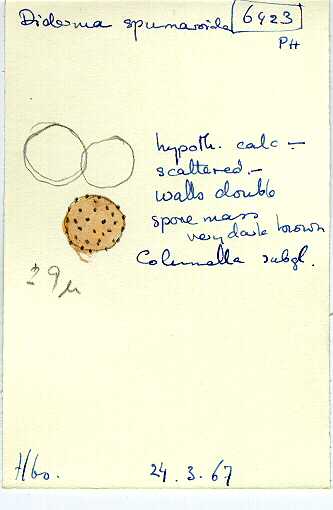 Diderma spumarioides 6423
PH
hypoth. calc –
scattered. –
walls double
spore mass
very dark brown
Columella subgl.
29μ
Hbo. 24.3.67